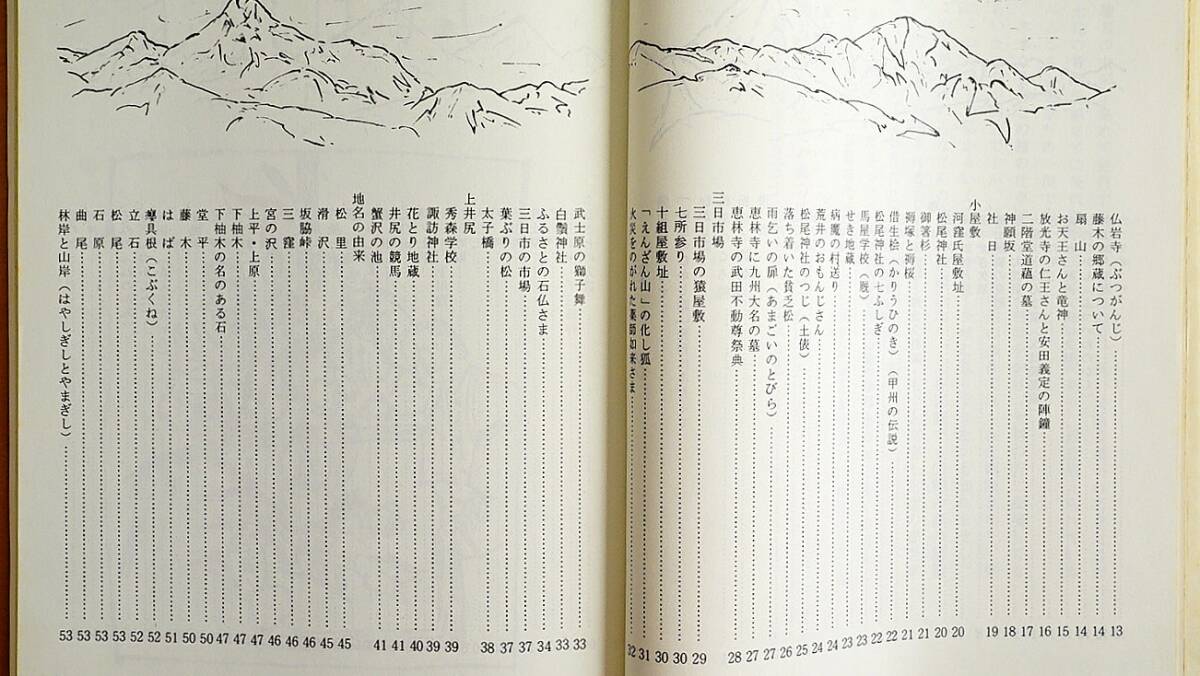 仏岩寺（ぶつがんじ）……13
藤木の郷蔵について……14
扇山……14
お天王さんと竜神……15
放光寺の仁王さんと安田義定の陣鐘……16
二階堂道蘊の墓……17
神願坂……18
社日……19
小屋敷
河窪氏屋敷址……20
松尾神社……20
御箸杉……21
褥塚と褥桜……21
借生桧（かりうひのき）（甲州の伝説）……22
松尾神社の七ふしぎ……22
馬屋学校（厩）……23
せき地蔵……23
病魔の村送り……24
荒井のおもんじさん……24
松尾神社のつじ（土俵）……25
落ち着いた貧乏松……26
雨乞いの扉（あまごいのとびら）……27
恵林寺に九州大名の墓……27
恵林寺の武田不動尊祭典……28
三日市場
三日市場の猿屋敷……29
七所参り……30
十組屋敷址……30
「えんざん山」の化し狐……31
火災をのがれた薬師如来さま……32
武士原の獅子舞……33
白鬚神社……33
ふるさとの石仏さま……34
三日市の市場……37
葉ぶりの松……37
太子橋……38
上井尻
秀森学校……39
諏訪神社……39
花とり地蔵……40
井尻の競馬……41
蟹沢の池……41
地名の由来
松里……45
滑沢……45
坂脇峠……46
三窪……46
宮の沢……46
上平・上原……47
下柚木……47
下柚木の名のある石……47
堂平……50
藤木……50
はば……51
具根（こぶくね）……52
立石……52
松尾……53
石原……53
曲尾……53
林岸と山岸（はやしぎしとやまぎし）……53